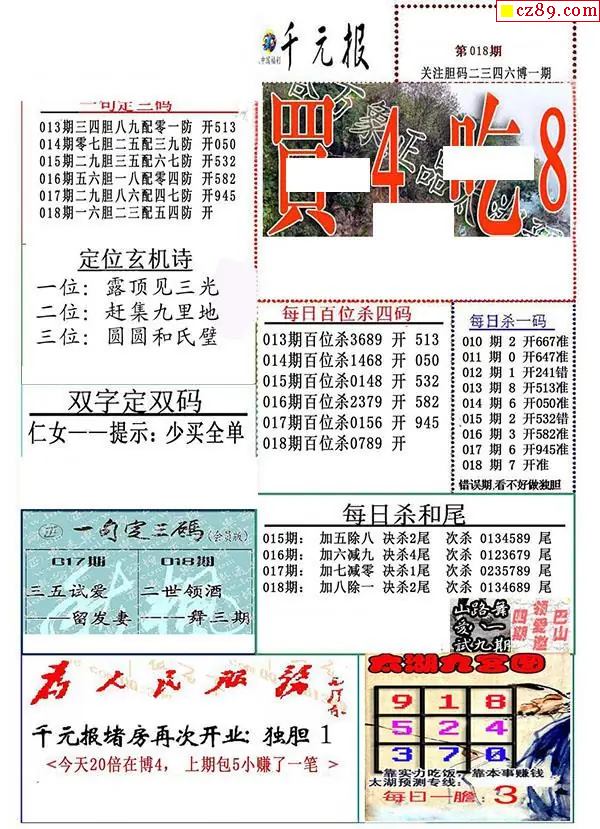 cz89.com
千元报
中国福利
第018期
关注胆码二三四六博一期
一句定三码
013期三四胆八九配零一防 开513
014期零七胆二五配三九防 开050
015期二九胆三五配六七防 开532
016期五六胆一八配零四防 开582
017期二九胆八六配四七防 开945
018期一六胆二三配五四防 开
買4吃8
定位玄机诗
一位: 露顶见三光
二位: 赶集九里地
三位: 圆圆和氏璧
每日百位杀四码
013期百位杀3689 开 513
014期百位杀1468 开 050
015期百位杀0148 开 532
016期百位杀2379 开 582
017期百位杀0156 开 945
018期百位杀0789 开
每日杀一码
010 期 2 开667准
011 期 0 开647准
012 期 1 开241错
013 期 8 开513准
014 期 6 开050准
015 期 2 开532错
016 期 3 开582准
017 期 6 开945准
018 期 7 开准
错误期,看不好做独胆
双字定双码
仁女——提示: 少买全单
每日杀和尾
015期: 加五除八 决杀2尾 次杀 0134589 尾
016期: 加六减九 决杀4尾 次杀 0123679 尾
017期: 加七减零 决杀1尾 次杀 0235789 尾
018期: 加八除一 决杀2尾 次杀 0134689 尾
一句定三碼(会员版)
017期 018期
三五试爱 二世领酒
——留发妻 ——舞三期
山路舞
爱一
试九期
四期
领爱邀
巴山
为人民服务
千元报堵房再次开业: 独胆 1
<今天20倍在博4, 上期包5小赚了一笔 >
太湖九宫图
9 1 8
5 2 4
3 7 0
靠实力吃饭, 靠本事赚钱
太湖预测专线:
每日一胆: 3